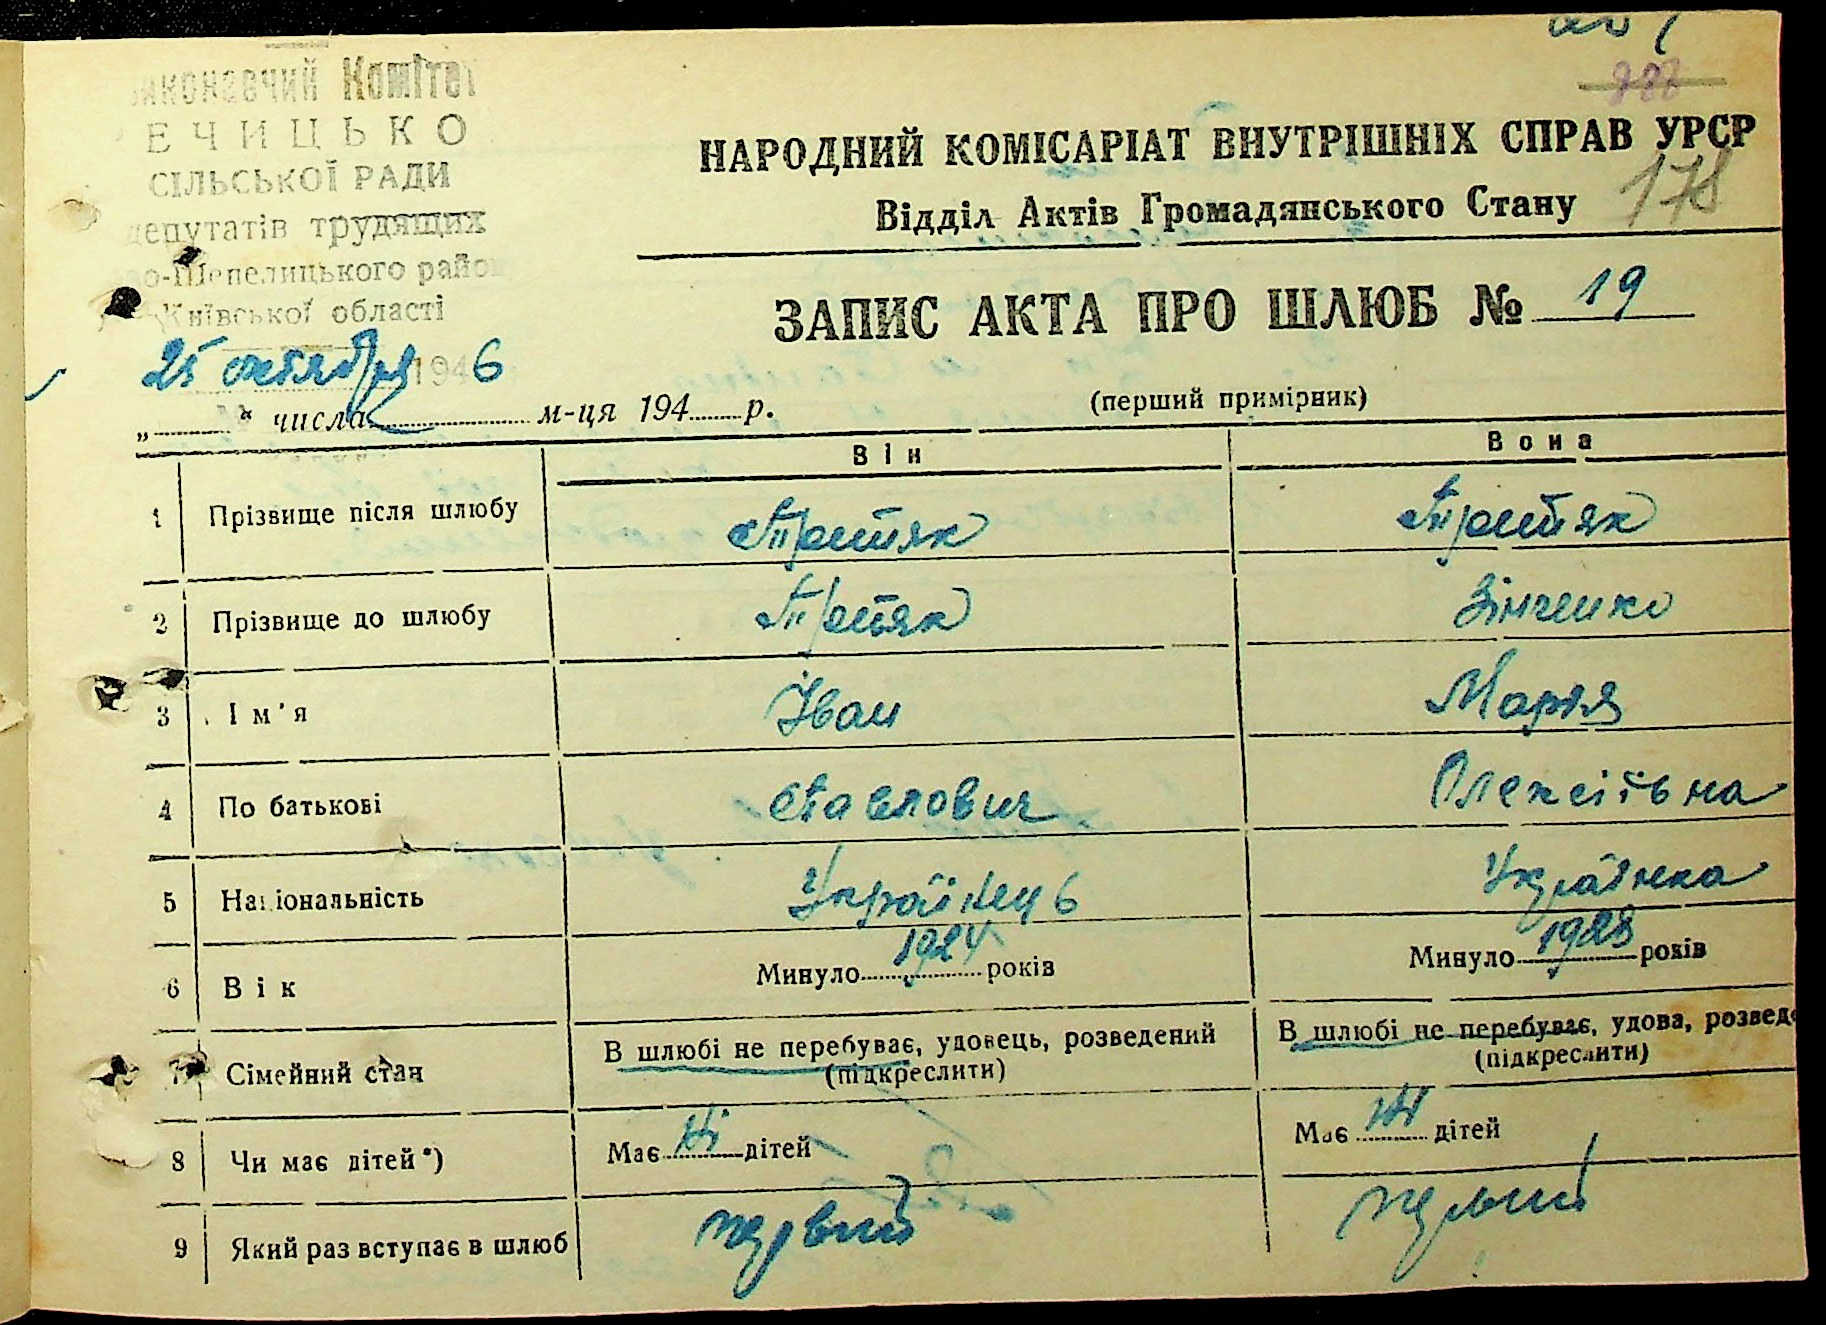 888
НАРОДНИЙ КОМІСАРІАТ ВНУТРІШНІХ СПРАВ УРСР
Відділ Актів Громадянського Стану
178
иконавчий Комітет
ЕЧИЦЬКО
СІЛЬСЬКОЇ РАДИ
депутатів трудящих
во-Шепелицького район
Київської області
25 октября 1946
ЗАПИС АКТА ПРО ШЛЮБ № 19
„ “ числа м-ця 194 р.
(перший примірник)
Він Вона
1 Прізвище після шлюбу Третяк Третяк
2 Прізвище до шлюбу Третяк Зінченко
3 Ім'я Іван Марія
4 По батькові Павлович Олексіївна
5 Національність Українець Українка
6 Вік Минуло 1924 років Минуло 1928 років
7 Сімейний стан В шлюбі не перебуває, удовець, розведений В шлюбі не перебуває, удова, розведе
(підкреслити) (підкреслити)
8 Чи має дітей*) Має ні дітей Має ні дітей
9 Який раз вступає в шлюб первий первий